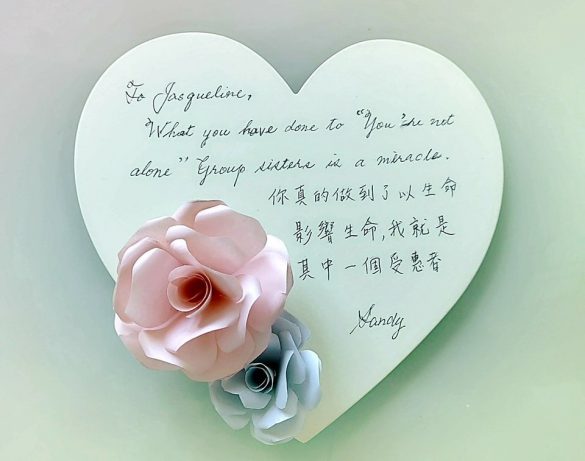 To Jacqueline,
What you have done to "You're not
alone" Group sisters is a miracle.
你真的做到了以生命
影響生命,我就是
其中一個受惠者
Sandy